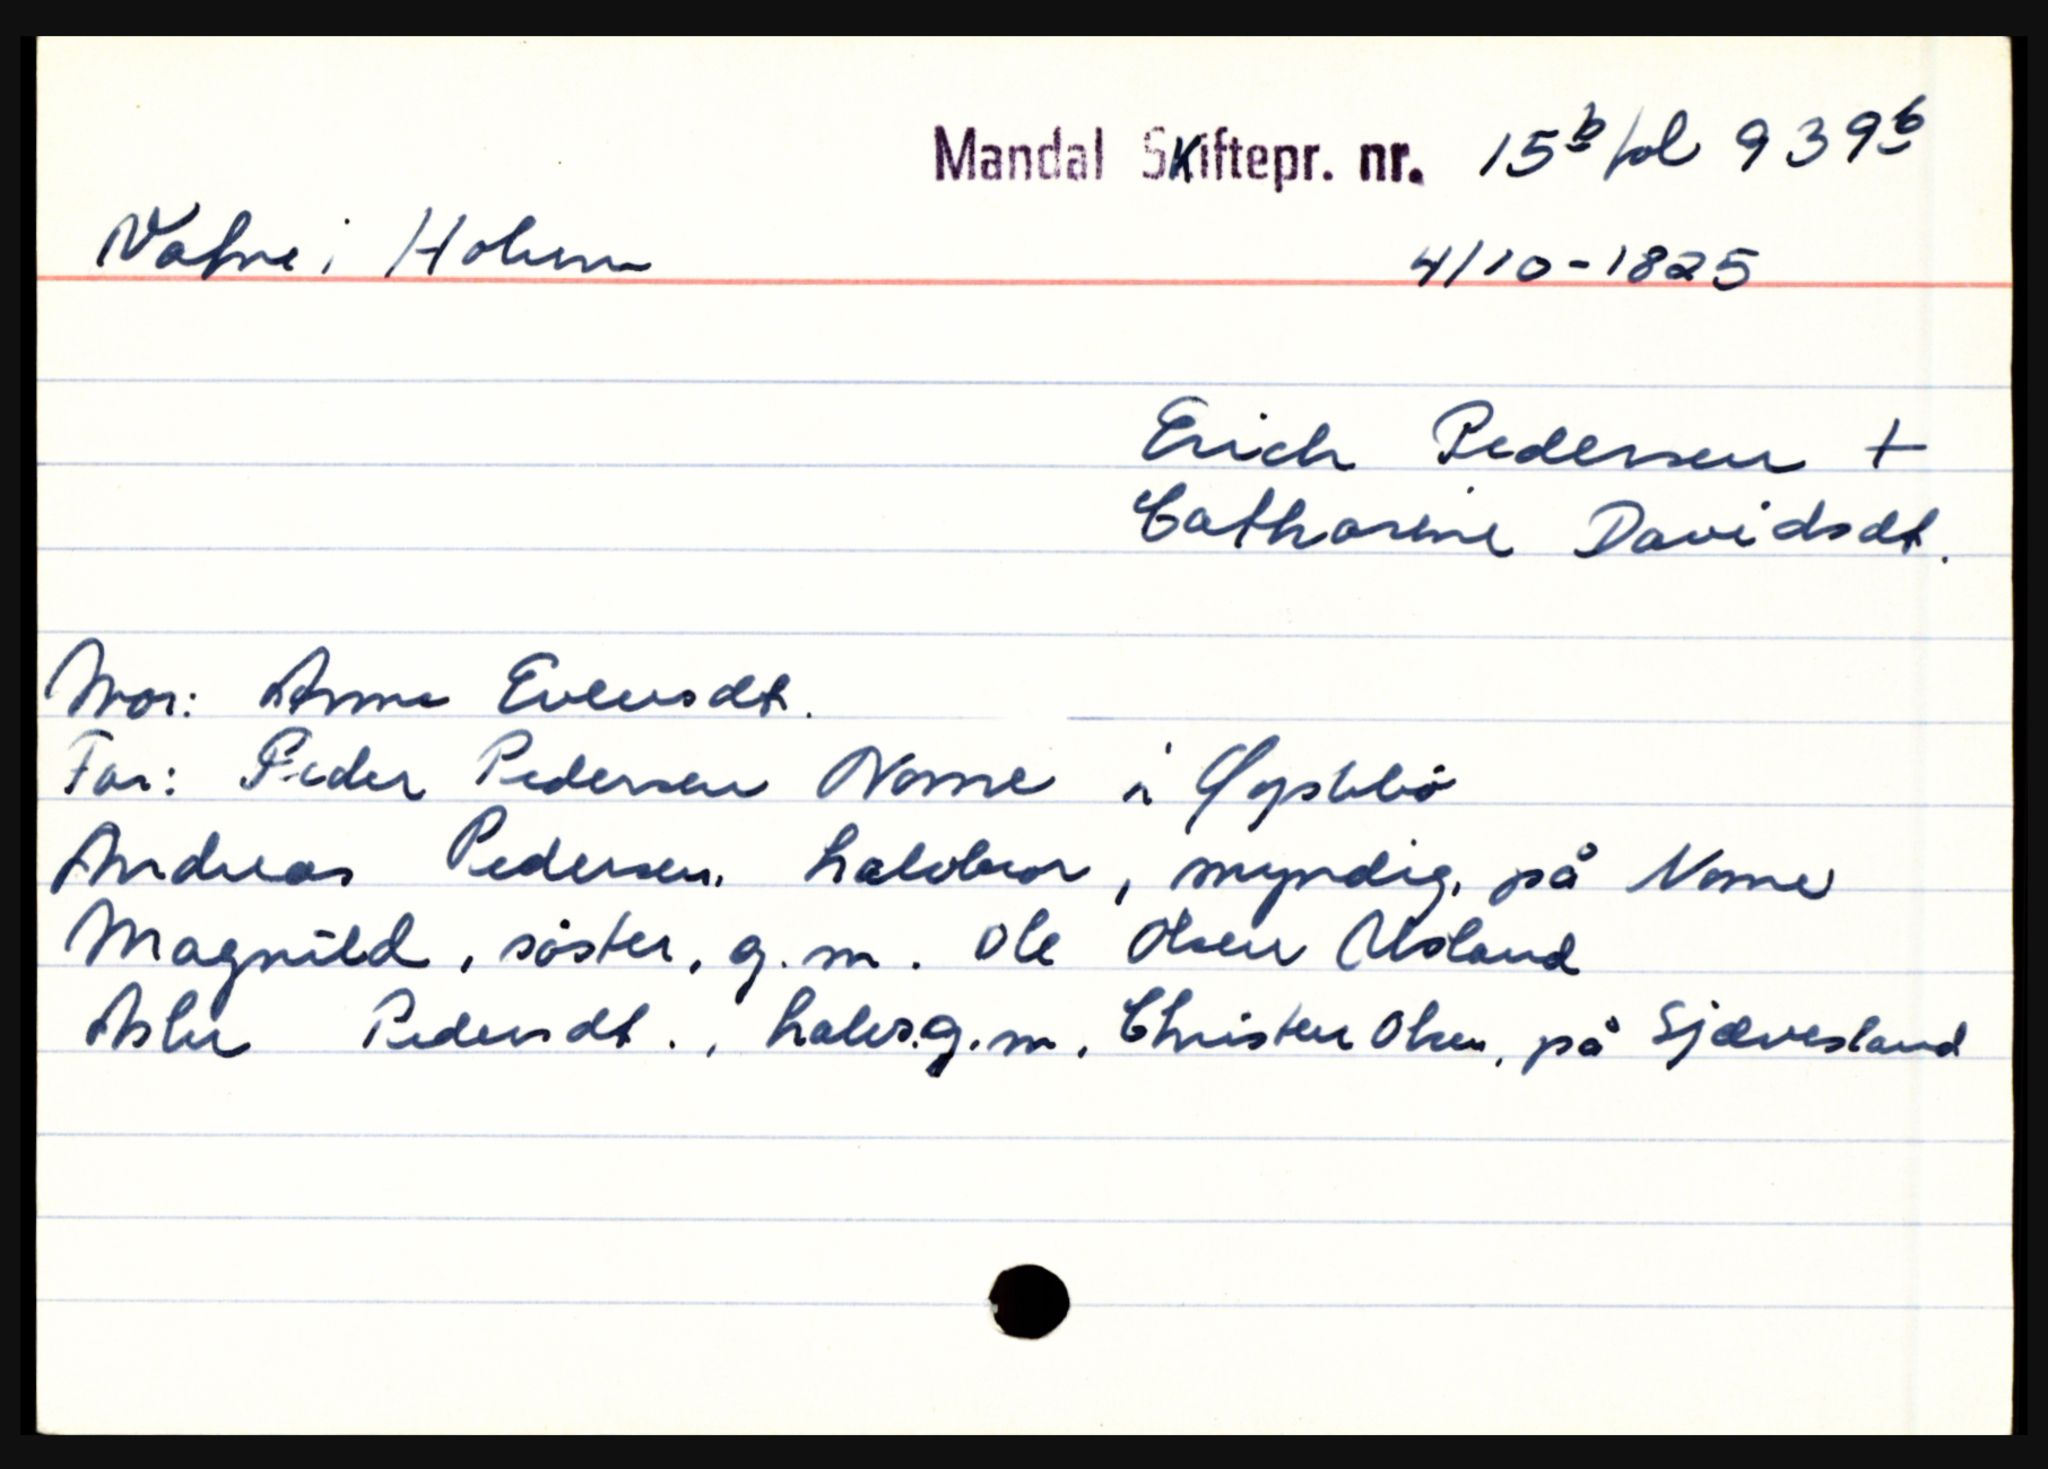 Mandal Skiftepr. nr. 15b fol 939b
Vatne i Holum 4/10-1825
Erich Pedersen +
Catharine Davidsdt.
Mor: Anne Evensdt.
Far: Peder Pedersen Nome i Øyslebö
Andreas Pedersen. halvbror, myndig, på Nome
Magnild, söster, g.m. Ole Olsen Usland
Pedersdt., halvs. g.m. Christen Olsen, på Sjævesland